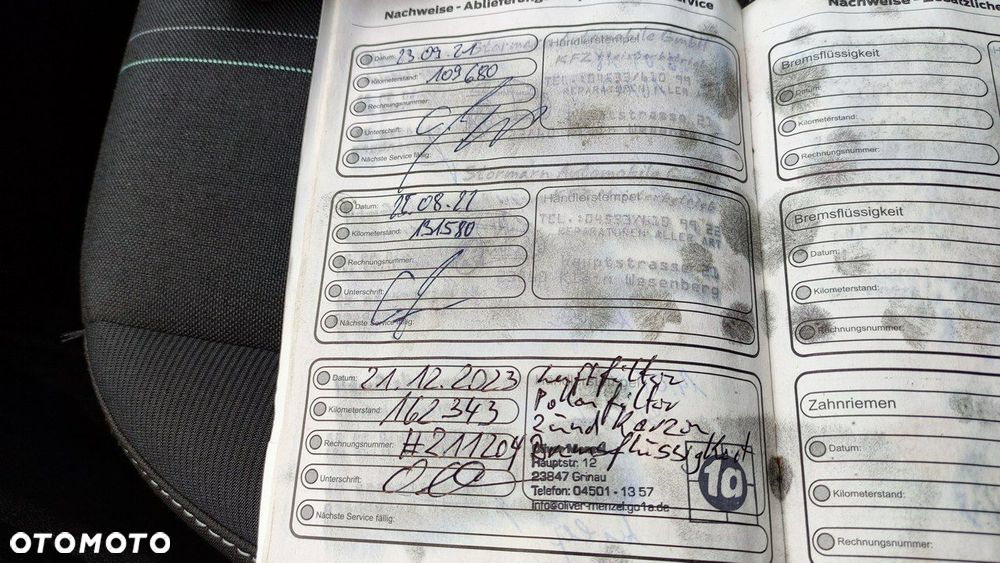 Nachweise - Ablieferungs
service
Stormarn Automobile GmbH
Datum: 23.09.21
Händlerstempel
Kilometerstand: 109680
TEL.:04533/610 99
REPARATUREN ALLER
Rechnungsnummer:
Unterschrift:
Nächste Service fällig:
Stormarn Automobile G
Datum: 22.08.22
Händlerstempel
Kilometerstand: 131580
REPARATUREN ALLER ART
Rechnungsnummer:
Hauptstrasse
Unterschrift:
Klein Wesenberg
Nächste Service fällig:
Datum: 21.12.2023
Luftfilter
Pollenfilter
Kilometerstand: 162343
Zünd Karzen
Rechnungsnummer: #211204
Bremsflüssigkeit
Hauptstr. 12
Unterschrift:
23847 Grinau
Telefon: 04501 - 13 57
info@oliver-menzel.go1a.de
1a
Nächste Service fällig:
Nachweise - Zusätzliche
Bremsflüssigkeit
Datum:
Kilometerstand:
Rechnungsnummer:
Bremsflüssigkeit
Datum:
Kilometerstand:
Rechnungsnummer:
Zahnriemen
Datum:
Kilometerstand:
Rechnungsnummer:
OTOMOTO